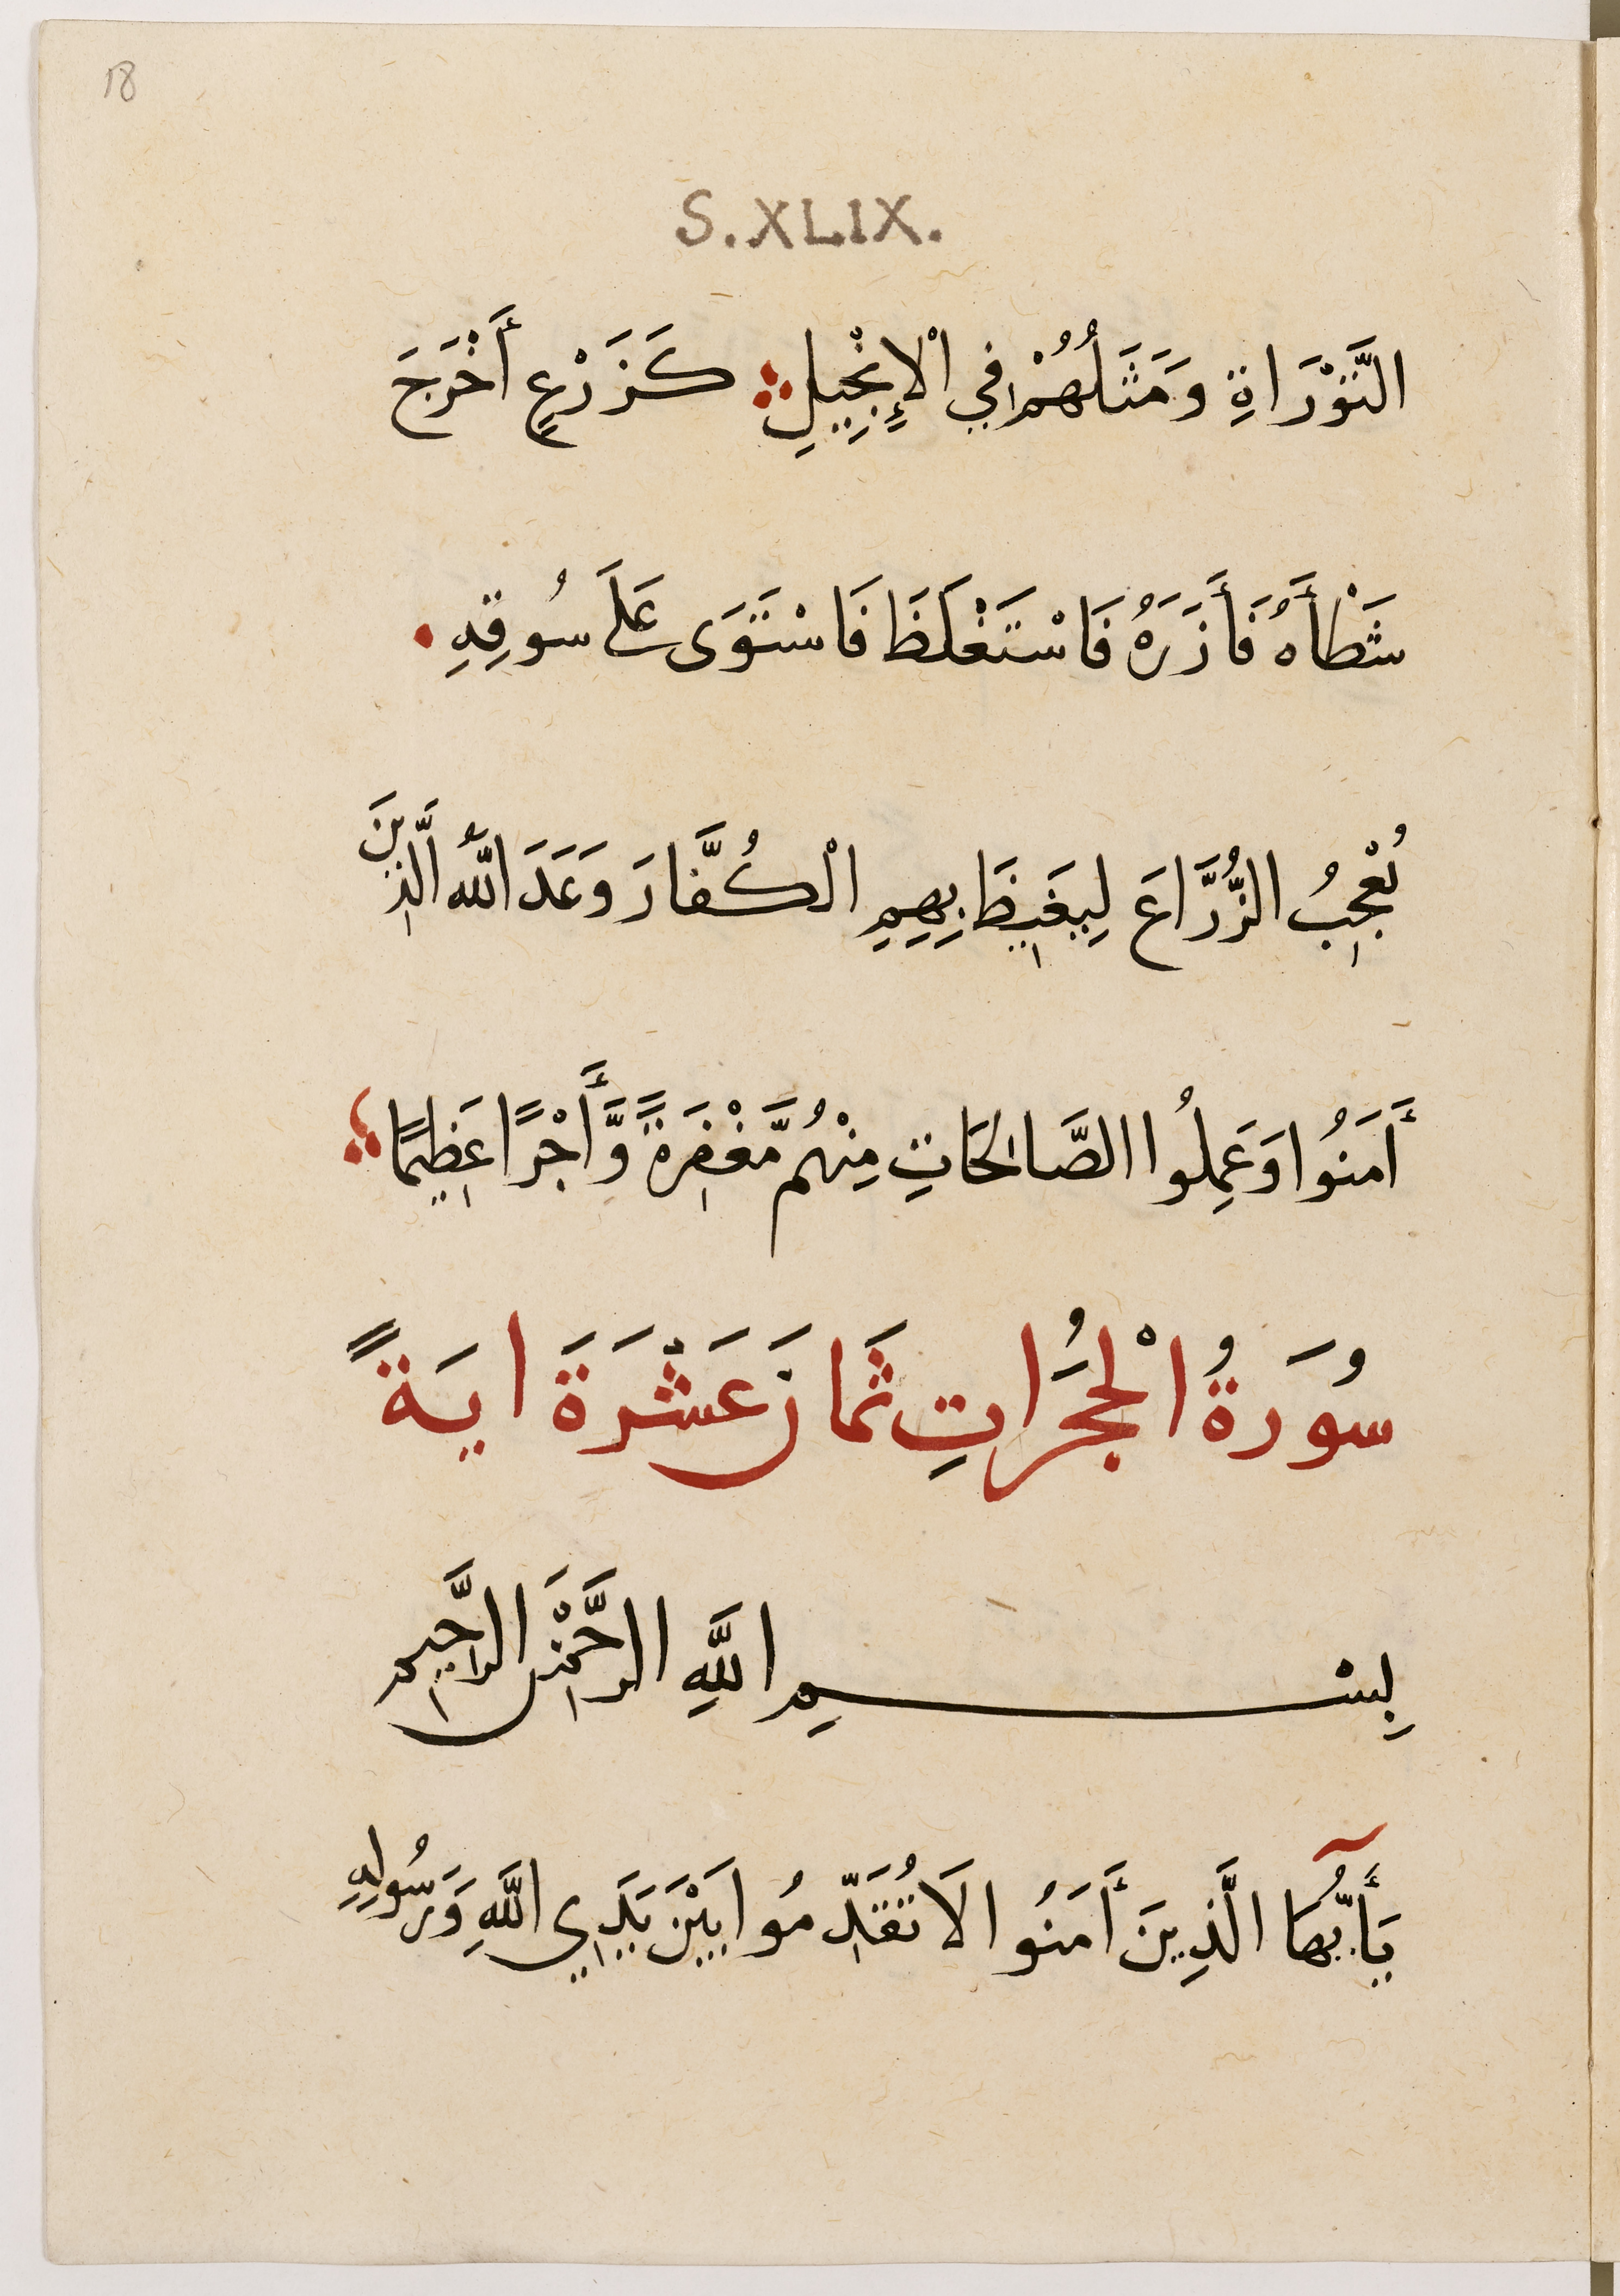 18
S.XLIX.
التَّوْرَاةِ وَمَثَلُهُمْ فِي الْإِنْجِيلِ كَزَرْعٍ أَخْرَجَ
شَطْأَهُ فَأَزَرَهُ فَاسْتَغْلَظَ فَاسْتَوَى عَلَى سُوقِهِ
يُعْجِبُ الزُّرَّاعَ لِيَغِيظَ بِهِمِ الْكُفَّارَ وَعَدَ اللَّهُ الَّذِينَ
أَمَنُوا وَعَمِلُوا الصَّالِحَاتِ مِنْهُم مَّغْفِرَةً وَّأَجْرًا عَظِيمًا
سُورَةُ الْحُجُرَاتِ ثَمَانَ عَشْرَةَ ايَةً
بِسْمِ اللَّهِ الرَّحْمَنِ الرَّحِيمِ
يَأَيُّهَا الَّذِينَ أَمَنُوا لَا تُقَدِّمُوا بَيْنَ يَدَيِ اللَّهِ وَرَسُولِهِ